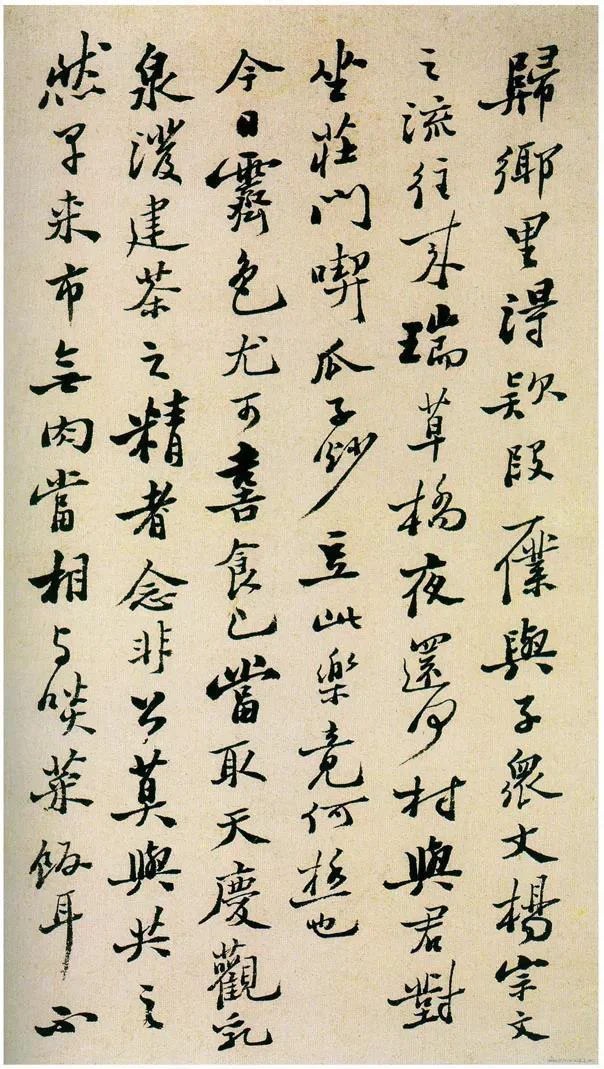 歸鄉里得款段一僕與子衆丈楊宗文
之流往来瑞草橋夜還何村與君對
坐莊門喫瓜子炒豆此樂竟何極也
今日霽色尤可喜食已當取天慶觀乳
泉潑建茶之精者念非公莫與共之
然早来市無肉當相与啖菜飯耳不